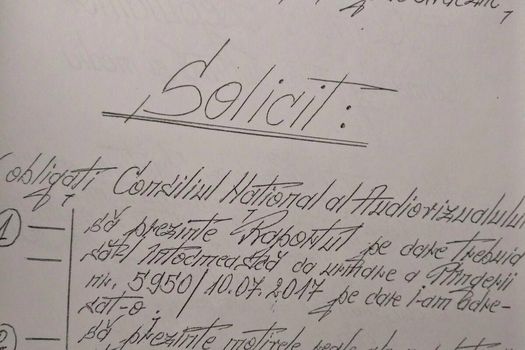 Solicit:
obligați Consiliul Național al Audiovizualului
1 — să prezinte Raportul pe care trebuia
— să-l întocmească ca urmare a Plîngerii
nr. 5950/10.07.2017 pe care i-am adre-
sat-o.
2 — să prezinte motivele reale